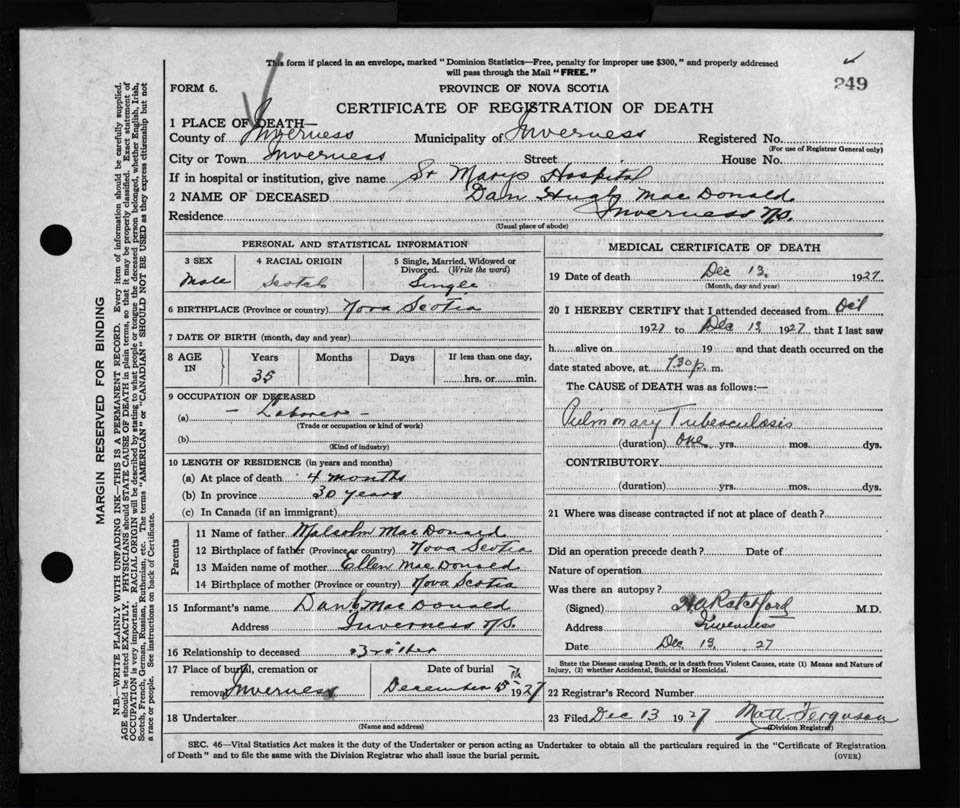 This form if placed in an envelope, marked "Dominion Statistics—Free, penalty for improper use $300," and properly addressed
will pass through the Mail "FREE."
249
FORM 6.
PROVINCE OF NOVA SCOTIA
CERTIFICATE OF REGISTRATION OF DEATH
1 PLACE OF DEATH—
County of Inverness Municipality of Inverness Registered No.
(For use of Registrar General only)
City or Town Inverness Street House No.
If in hospital or institution, give name St Marys Hospital
2 NAME OF DECEASED Dan Hugh MacDonald
Residence Inverness N.S.
(Usual place of abode)
PERSONAL AND STATISTICAL INFORMATION
3 SEX 4 RACIAL ORIGIN 5 Single, Married, Widowed or
Divorced. (Write the word)
Male Scotch Single
6 BIRTHPLACE (Province or country) Nova Scotia
7 DATE OF BIRTH (month, day and year)
8 AGE IN Years Months Days If less than one day,
35 hrs. or min.
9 OCCUPATION OF DECEASED
(a) - Laborer -
(Trade or occupation or kind of work)
(b)
(Kind of industry)
10 LENGTH OF RESIDENCE (in years and months)
(a) At place of death 4 months
(b) In province 30 years
(c) In Canada (if an immigrant)
Parents
11 Name of father Malcolm MacDonald
12 Birthplace of father (Province or country) Nova Scotia
13 Maiden name of mother Ellen MacDonald
14 Birthplace of mother (Province or country) Nova Scotia
15 Informant's name MacDonald
Address Inverness N.S.
16 Relationship to deceased Brother
17 Place of burial, cremation or Date of burial
removal Inverness December 15th 1927
18 Undertaker
(Name and address)
MEDICAL CERTIFICATE OF DEATH
19 Date of death Dec 13, 1927
(Month, day and year)
20 I HEREBY CERTIFY that I attended deceased from Oct
1927 to Dec 13 1927 that I last saw
h alive on 19 and that death occurred on the
date stated above, at 730 p. m.
The CAUSE of DEATH was as follows:—
Pulmonary Tuberculosis
(duration) One yrs. mos. dys.
CONTRIBUTORY
(duration) yrs. mos. dys.
21 Where was disease contracted if not at place of death?
Did an operation precede death? Date of
Nature of operation
Was there an autopsy?
(Signed) Ratchford M.D.
Address Inverness
Date Dec 13, 27
State the Disease causing Death, or in death from Violent Causes, state (1) Means and Nature of
Injury, (2) whether Accidental, Suicidal or Homicidal.
22 Registrar's Record Number
23 Filed Dec 13 1927 Matt Ferguson
(Division Registrar)
SEC. 46—Vital Statistics Act makes it the duty of the Undertaker or person acting as Undertaker to obtain all the particulars required in the "Certificate of Registration
of Death" and to file the same with the Division Registrar who shall issue the burial permit. (OVER)
MARGIN RESERVED FOR BINDING
N.B.—WRITE PLAINLY WITH UNFADING INK—THIS IS A PERMANENT RECORD. Every item of information should be carefully supplied.
AGE should be stated EXACTLY. PHYSICIANS should STATE CAUSE OF DEATH in plain terms, so that it may be properly classified. Exact statement of
OCCUPATION is very important. RACIAL ORIGIN will be described by stating to what people or tongue the deceased person belonged, whether English, Irish,
Scotch, French, German, Russian, Ruthenian, etc. The terms "AMERICAN" or "CANADIAN" SHOULD NOT BE USED as they express citizenship but not
a race or people. See instructions on back of Certificate.